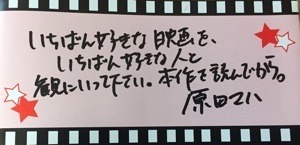 いちばん好きな映画を、
いちばん好きな人と
観にいって下さい。本作を読んでから。
原田マハ